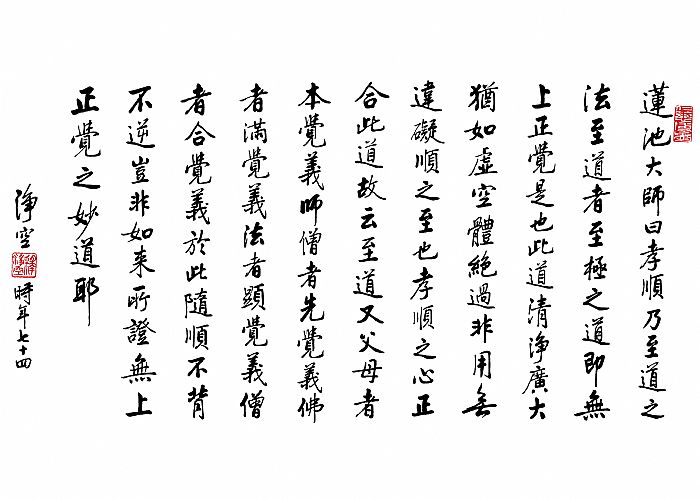 蓮池大師曰孝順乃至道之
法至道者至極之道即無
上正覺是也此道清淨廣大
猶如虛空體絶過非用無
違礙順之至也孝順之心正
合此道故云至道又父母者
本覺義師僧者先覺義佛
者滿覺義法者顯覺義僧
者合覺義於此隨順不背
不逆豈非如来所證無上
正覺之妙道耶
淨空
時年七十四